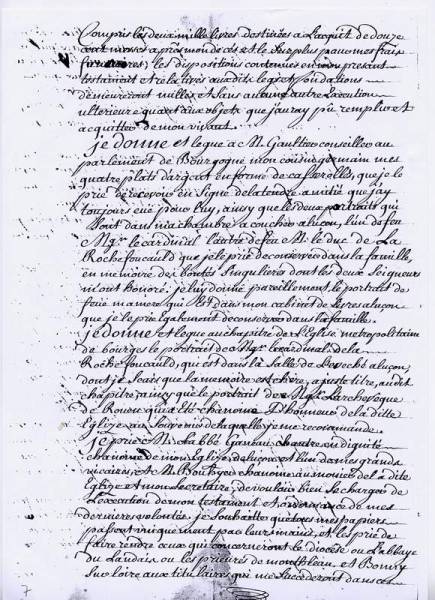 Compris les deux mille livres destinées a L'acquit de douze
cent messes après mon décès et le surplus pour mes frais
funeraires, les dispositions contenües en mon present
testament et relatives auxdits legs et fondations
demeureront nulles et sans aucune autre Execution
ulterieure quant aux objets que j'auray pû remplir et
acquitter de mon vivant.
je donne et legue a M. Gaultier conseiller au
parlement de Bourgogne mon cousin germain mes
quatre plats d'argent en forme de casserolles, que je le
prie de recevoir en signe de la tendre amitié que j'ay
toujours eüe pour luy, ainsy que les deux portraits qui
sont dans ma chambre a coucher a luçon, l'un de feu
M.gr le cardinal l'autre de feu M. le duc de La
Rochefoucauld que je le prie de conserver dans la famille,
en memoire des bontés singulieres dont les deux Seigneurs
m'ont honoré; je luy donne pareillement le portrait de
feüe ma mere qui est dans mon cabinet de livres a luçon
que je le prie egalement de conserver dans la famille.
je donne et legue au chapitre de l'Eglise metropolitaine
de bourges le portrait de M.gr le cardinal de la
Rochefoucauld, qui est dans la Salle de l'evesché a luçon,
dont je sçais que la memoire est chere, a juste titre, audit
chapitre, ainsy que le portrait de M.gr L'archevêque
de Rouen qui a été chanoine d'honneur de la ditte
Eglise au souvenir de laquelle je me recommande.
je prie M. l'abbé Gandu chantre en dignité
chanoine de mon Eglise de luçon et l'un de mes grands
vicaires, et M. chanoine aumonier de la dite
Eglise et mon Secretaire, de vouloir bien se charger de
L'execution de mon testament et ordonnance de mes
dernieres volontés. je souhaitte que tous mes papiers
passent uniquement par leurs mains, et les prie de
faire rendre ceux qui concerneront le diocèse ou L'abbaye
du Landais, ou les prieurés de et
Sur loire aux titulaires qui me succederont dans ces